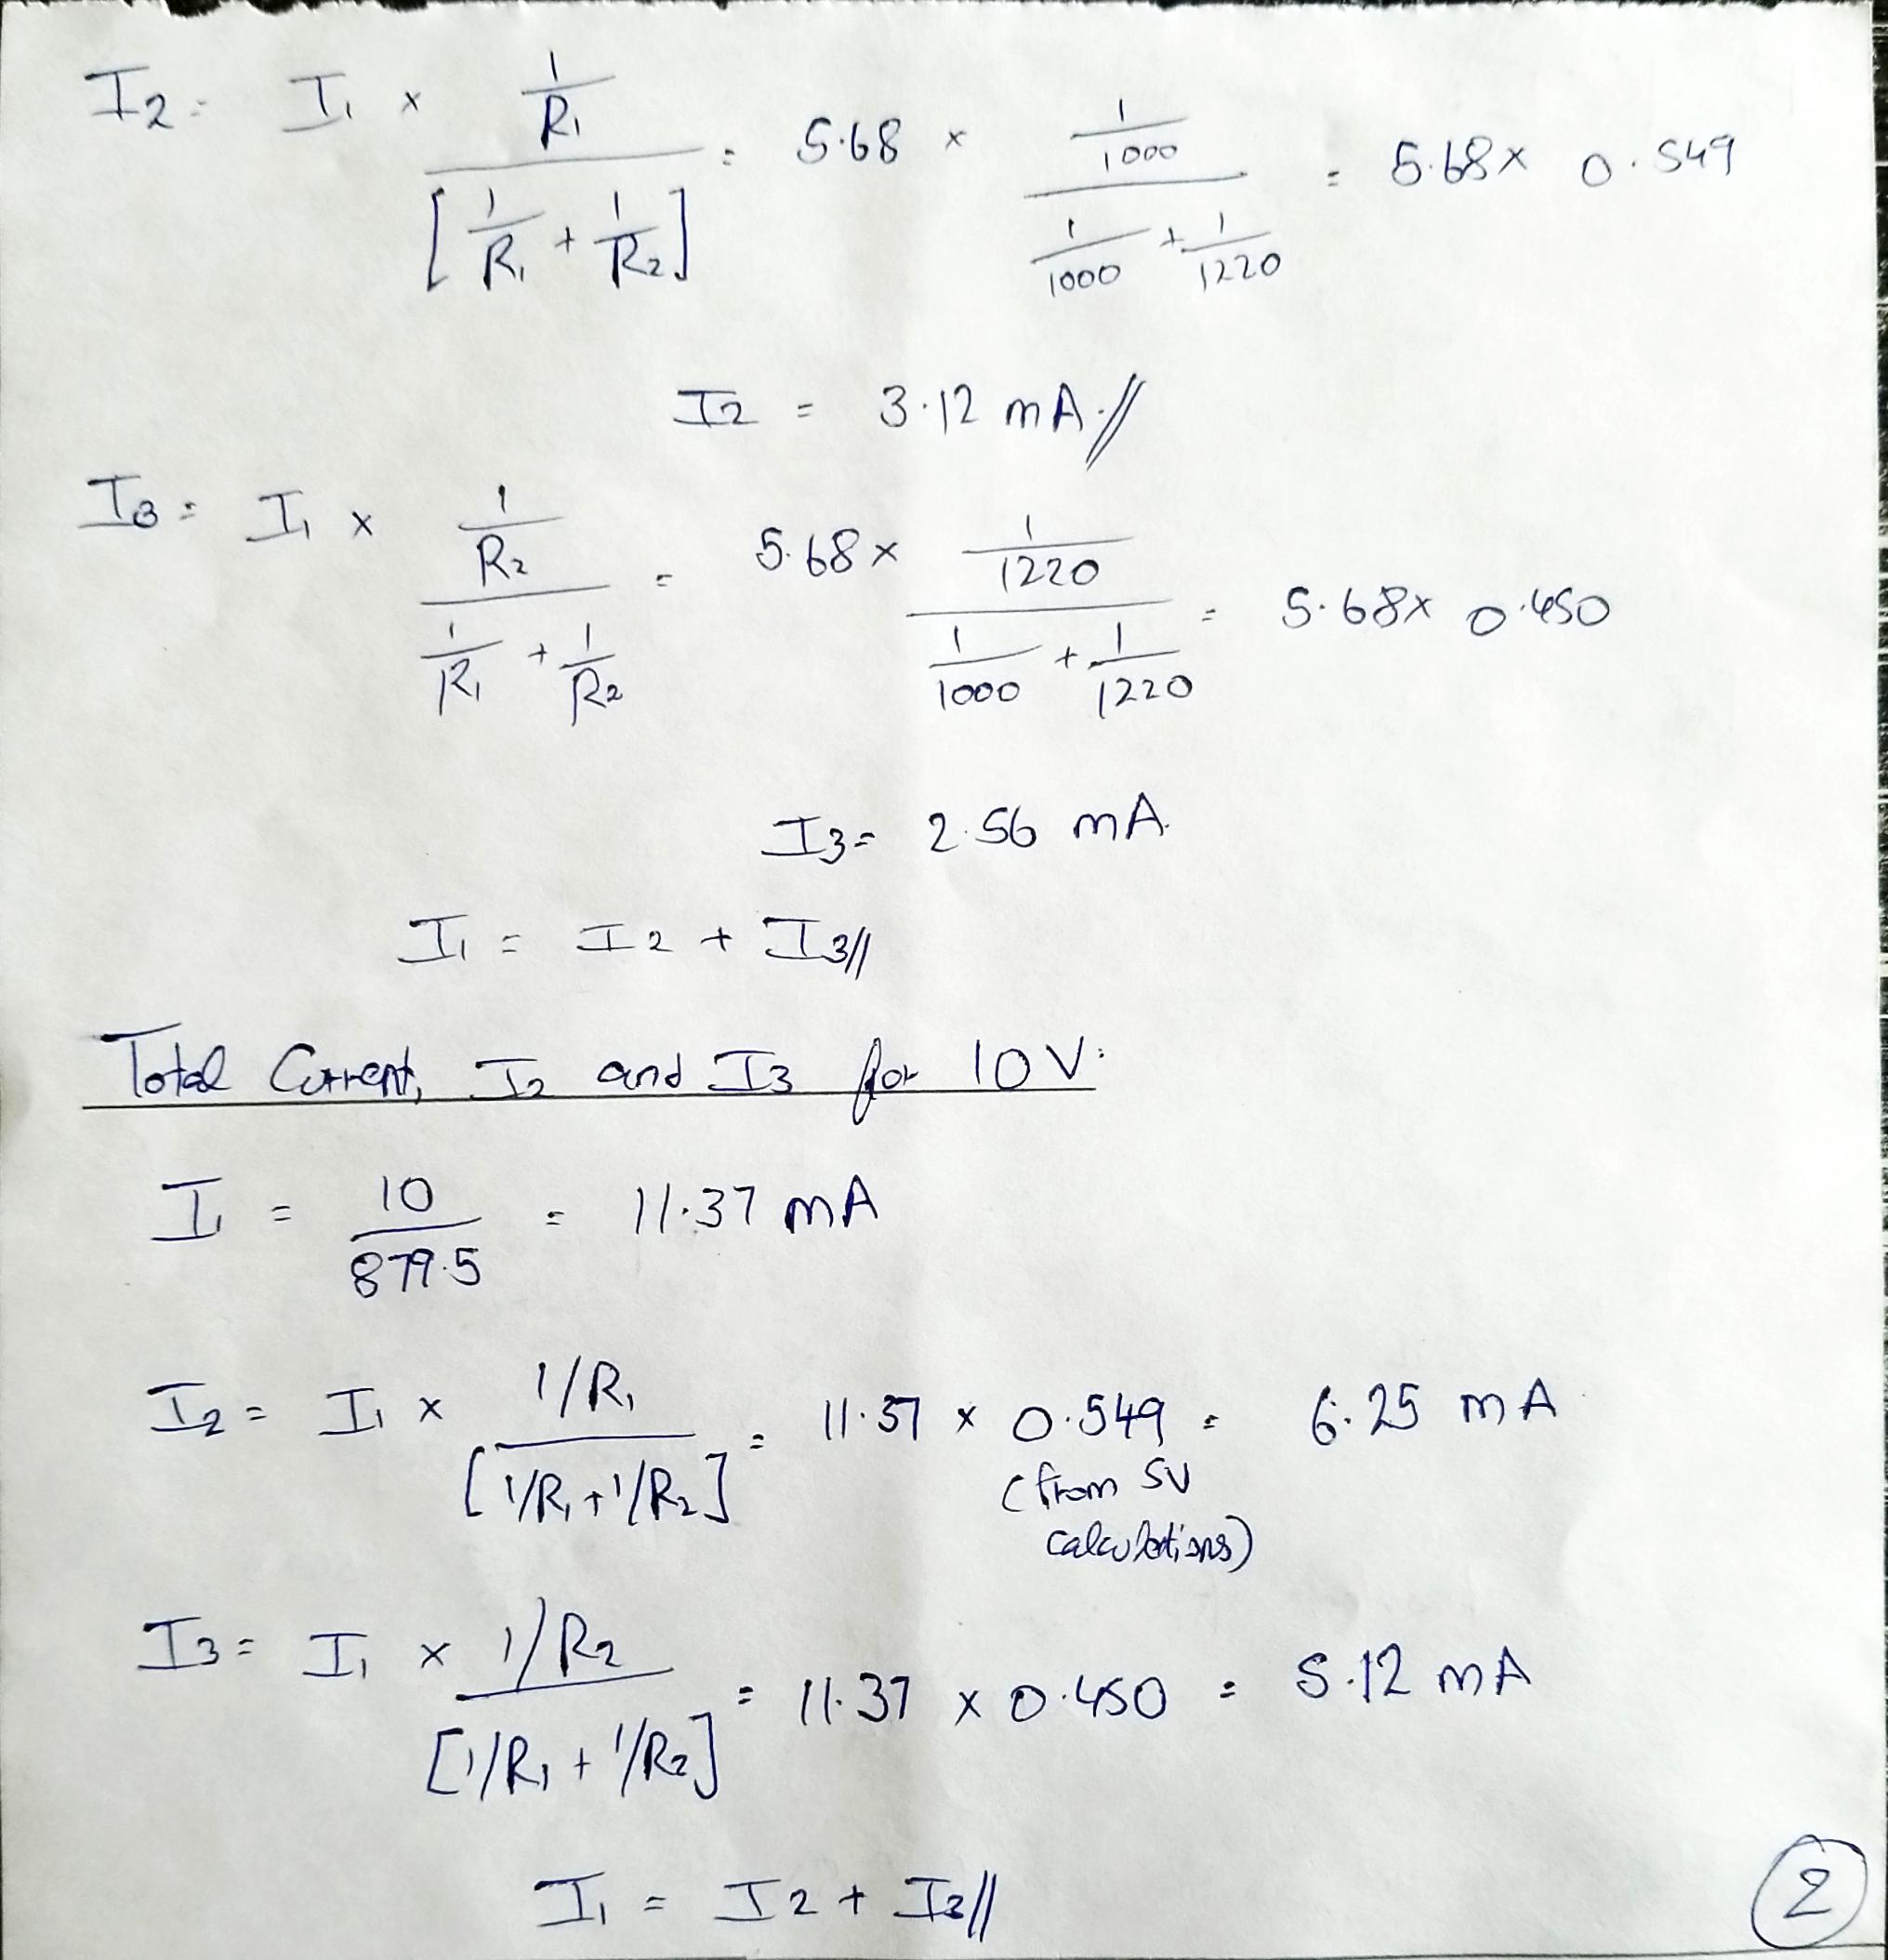 I2 = I1 × (1/R1) / [1/R1 + 1/R2] = 5.68 × (1/1000) / (1/1000 + 1/1220) = 5.68 × 0.549
I2 = 3.12 mA.//
I3 = I1 × (1/R2) / (1/R1 + 1/R2) = 5.68 × (1/1220) / (1/1000 + 1/1220) = 5.68 × 0.450
I3 = 2.56 mA.
I1 = I2 + I3//
Total Current, I2 and I3 for 10V:
I1 = 10/879.5 = 11.37 mA
I2 = I1 × 1/R1 / [1/R1 + 1/R2] = 11.37 × 0.549 = 6.25 mA
(from 5V
calculations)
I3 = I1 × 1/R2 / [1/R1 + 1/R2] = 11.37 × 0.450 = 5.12 mA
I1 = I2 + I3//
2